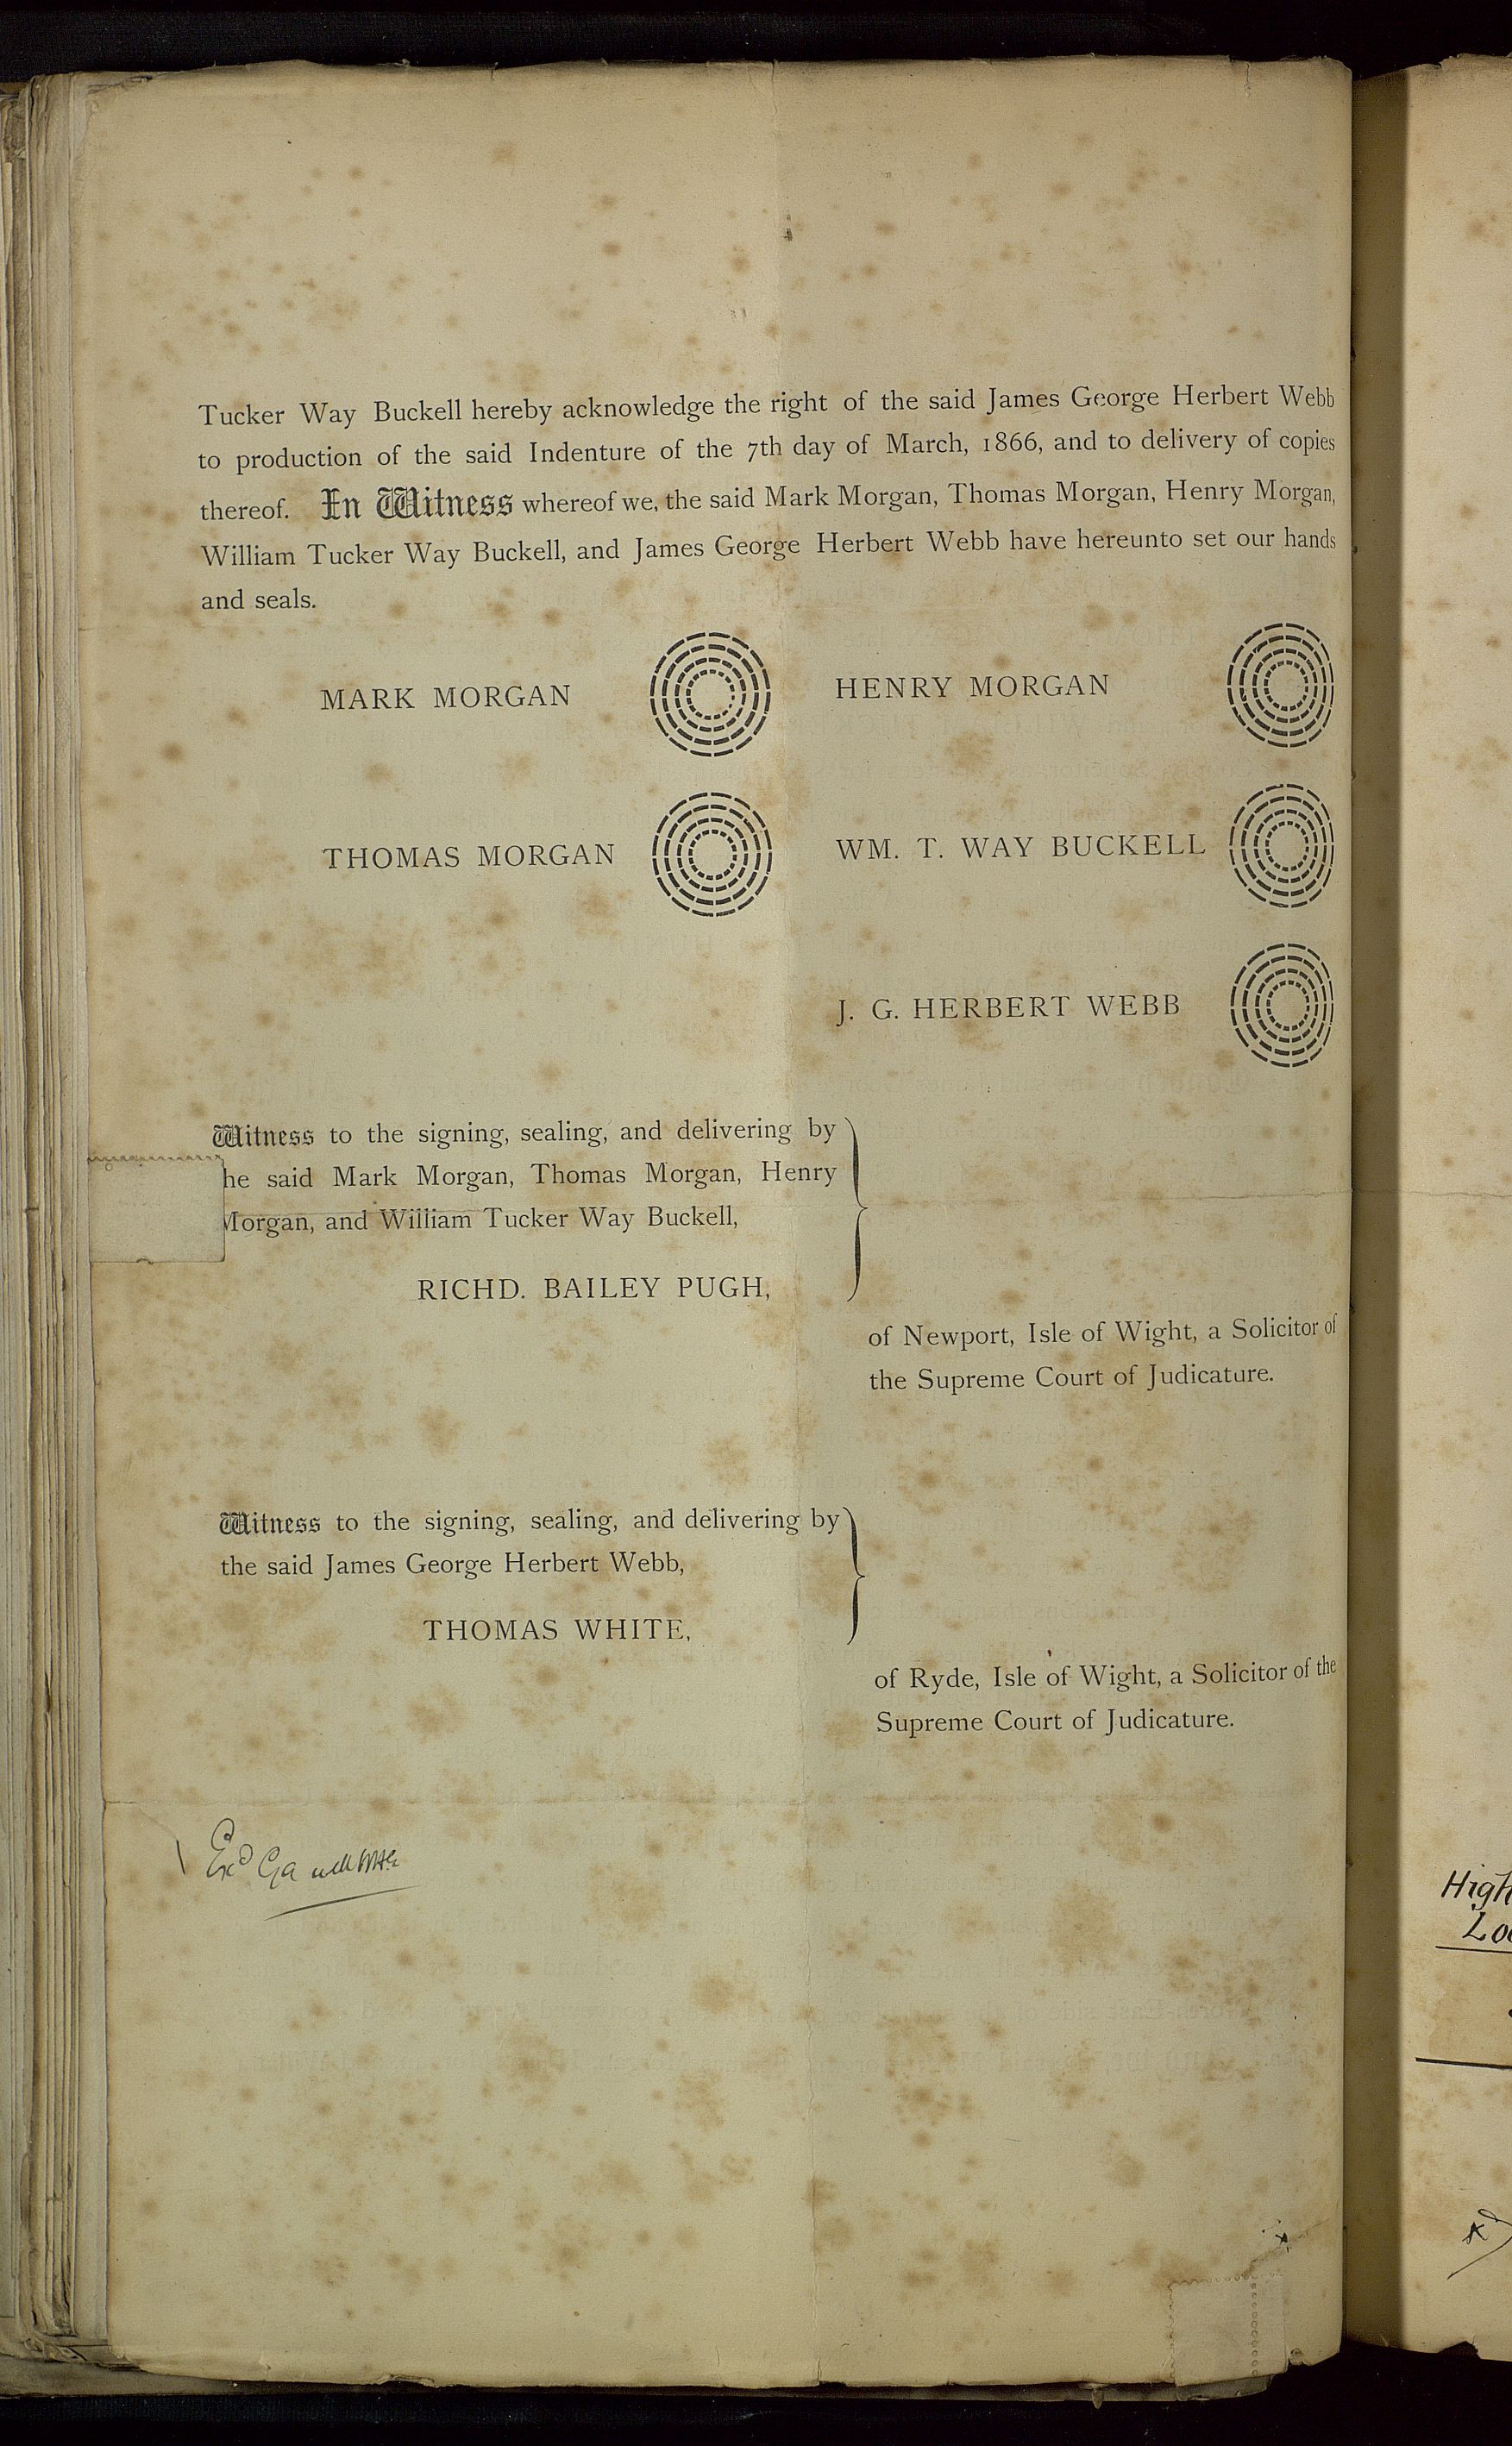 Tucker Way Buckell hereby acknowledge the right of the said James George Herbert Webb
to production of the said Indenture of the 7th day of March, 1866, and to delivery of copies
thereof. In Witness whereof we, the said Mark Morgan, Thomas Morgan, Henry Morgan,
William Tucker Way Buckell, and James George Herbert Webb have hereunto set our hands
and seals.
MARK MORGAN
HENRY MORGAN
THOMAS MORGAN
WM. T. WAY BUCKELL
J. G. HERBERT WEBB
Witness to the signing, sealing, and delivering by
he said Mark Morgan, Thomas Morgan, Henry
Morgan, and William Tucker Way Buckell,
RICHD. BAILEY PUGH,
of Newport, Isle of Wight, a Solicitor of
the Supreme Court of Judicature.
Witness to the signing, sealing, and delivering by
the said James George Herbert Webb,
THOMAS WHITE,
of Ryde, Isle of Wight, a Solicitor of the
Supreme Court of Judicature.
Exd
High
Lo